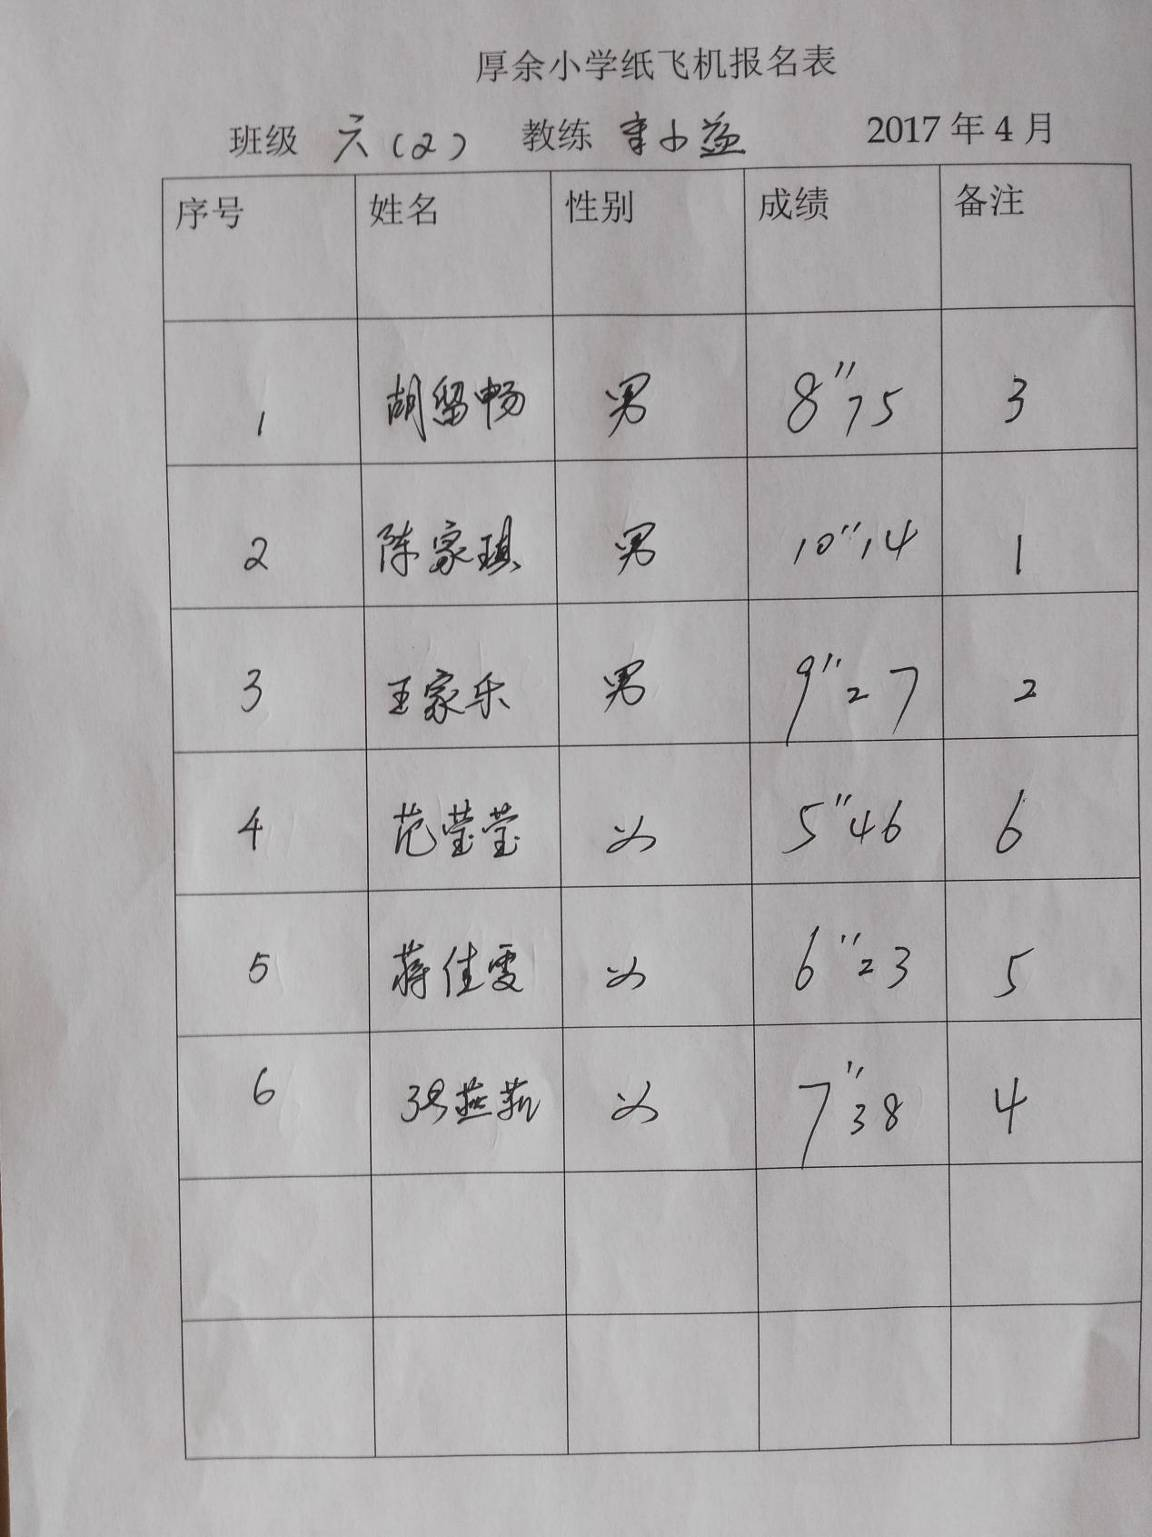 厚余小学纸飞机报名表
班级 六(2) 教练 章小益 2017年4月
序号 姓名 性别 成绩 备注
1 胡留畅 男 8"75 3
2 陈家琪 男 10"14 1
3 王家乐 男 9"27 2
4 范莹莹 女 5"46 6
5 蒋佳雯 女 6"23 5
6 张燕 女 7"38 4